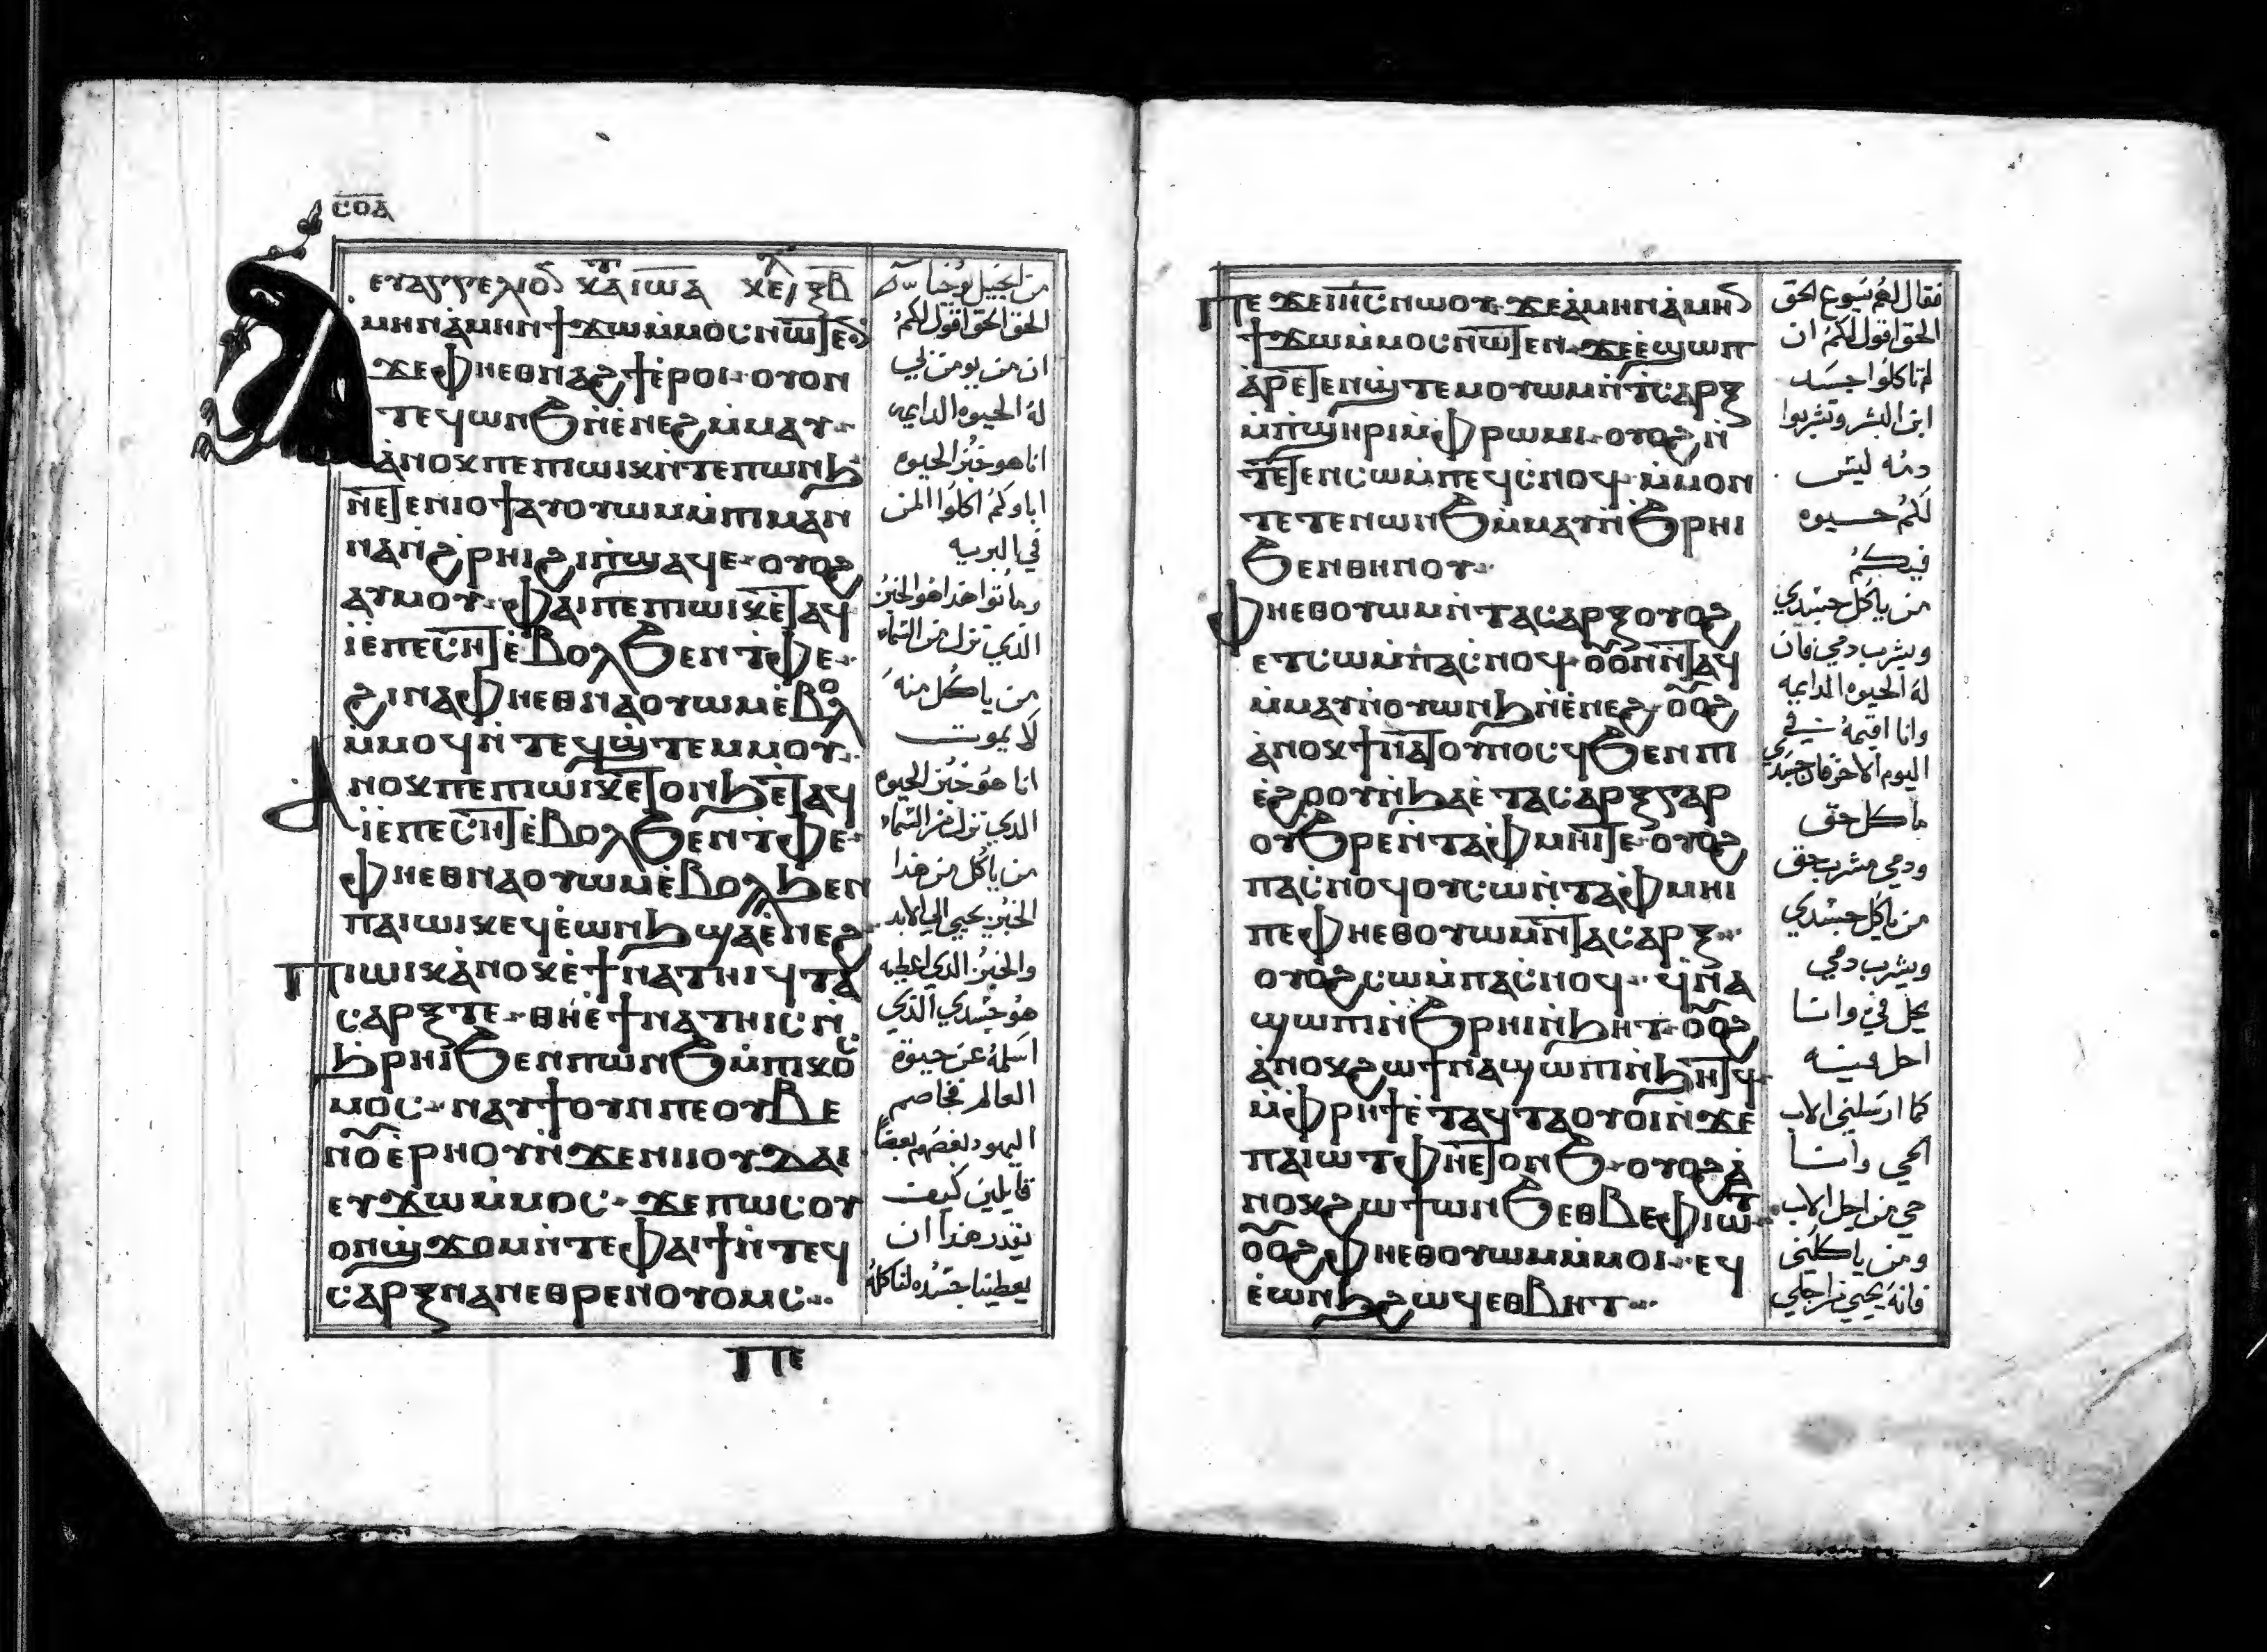 ⲥⲟⲁ
ⲉⲩⲁⲅⲅⲉⲗⲓⲟⲛ ⲕⲁⲧ ⲓⲱⲁ ⲕⲉ ⲝⲃ
ⲁⲙⲏⲛ ⲁ̀ⲙⲏⲛ ϯϫⲱ ⲙ̀ⲙⲟⲥ ⲛⲱⲧⲉⲛ
ϫⲉ ⲫⲏⲉⲑⲛⲁϩϯ ⲉ̀ⲣⲟⲓ ⲟⲩⲟⲛ
ⲧⲉϥ ⲱⲛϧ ⲛ̀ⲉ̀ⲛⲉϩ ⲙ̀ⲙⲁⲩ
ⲁ̀ⲛⲟⲕ ⲡⲉ ⲡⲓⲱⲓⲕ ⲛ̀ⲧⲉ ⲡⲱⲛϧ
ⲛⲉⲧⲉⲛⲓⲟϯ ⲁⲩⲟⲩⲱⲙ ⲙ̀ⲡⲓⲙⲁⲛ
ⲛⲁ ⲛ̀ϩⲣⲏⲓ ϩⲓ ⲡ̀ϣⲁϥⲉ ⲟⲩⲟϩ
ⲁⲩⲙⲟⲩ ⲫⲁⲓ ⲡⲉ ⲡⲓⲱⲓⲕ ⲉ̀ⲧⲁϥ
ⲓ̀ ⲉ̀ⲡⲉⲥⲏⲧ ⲉ̀ⲃⲟⲗ ϧⲉⲛ ⲧ̀ⲫⲉ
ϩⲓⲛⲁ ⲫⲏⲉⲑⲛⲁⲟⲩⲱⲙ ⲉ̀ⲃⲟⲗ
ⲙ̀ⲙⲟϥ ⲛ̀ⲧⲉϥϣ̀ⲧⲉⲙⲙⲟⲩ
ⲁⲛⲟⲕ ⲡⲉ ⲡⲓⲱⲓⲕ ⲉⲧⲟⲛϧ ⲉ̀ⲧⲁϥ
ⲓ̀ ⲉ̀ⲡⲉⲥⲏⲧ ⲉ̀ⲃⲟⲗ ϧⲉⲛ ⲧ̀ⲫⲉ
ⲫⲏⲉⲑⲛⲁⲟⲩⲱⲙ ⲉ̀ⲃⲟⲗ ϧⲉⲛ
ⲡⲁⲓⲱⲓⲕ ⲉϥⲉ̀ⲱⲛϧ ϣⲁ ⲉ̀ⲛⲉϩ
ⲡⲓⲱⲓⲕ ⲁ̀ⲛⲟⲕ ⲉ̀ϯⲛⲁⲧⲏⲓϥ ⲧⲁ
ⲥⲁⲣⲝ ⲧⲉ ⲑⲏ ⲉ̀ϯⲛⲁⲧⲏⲓⲥ ⲛ̀
ϧⲣⲏⲓ ϧⲉⲛ ⲡⲱⲛϧ ⲙ̀ⲡⲓⲕⲟⲥ
ⲙⲟⲥ ⲛⲁⲩϯ ⲟⲩⲛ ⲡⲉ ⲟⲩⲃⲉ
ⲛⲟⲩⲉ̀ⲣⲏⲟⲩ ⲛ̀ϫⲉ ⲛⲓⲓⲟⲩⲇⲁⲓ
ⲉⲩϫⲱ ⲙ̀ⲙⲟⲥ ϫⲉ ⲡⲱⲥ ⲟⲩ
ⲟⲛ ϣ̀ϫⲟⲙ ⲛ̀ⲧⲉ ⲫⲁⲓ ϯ ⲛ̀ⲧⲉϥ
ⲥⲁⲣⲝ ⲛⲁⲛ ⲉⲑⲣⲉⲛⲟⲩⲟⲙⲥ
ⲡⲉ
من انجيل يوحنا
الحق الحق اقول لكم
ان من يومن بي
له الحيوه الدايمه
انا هو خبز الحيوه
اباوكم اكلوا المن
في البريه
وماتوا هذا هو الخبز
الذي نزل من السماء
من ياكل منه
لا يموت
انا هو خبز الحيوه
الذي نزل من السماء
من ياكل من هذا
الخبز يحيي الي الابد
والخبز الذي اعطيه
هو جسدي الذي
اسلمه عن حيوة
العالم فخاصم
اليهود بعضهم بعضا
قايلين كيف
يقدر هذا ان
يعطينا جسده لناكله
ⲡⲉϫⲉ ⲓⲏⲥ ⲛⲱⲟⲩ ϫⲉ ⲁ̀ⲙⲏⲛ ⲁ̀ⲙⲏⲛ
ϯϫⲱ ⲙ̀ⲙⲟⲥ ⲛⲱⲧⲉⲛ ϫⲉ ⲉ̀ϣⲱⲡ
ⲁ̀ⲣⲉⲧⲉⲛϣ̀ⲧⲉⲙⲟⲩⲱⲙ ⲛ̀ⲧ̀ⲥⲁⲣⲝ
ⲙ̀ⲡ̀ϣⲏⲣⲓ ⲙ̀ⲫ̀ⲣⲱⲙⲓ ⲟⲩⲟϩ ⲛ̀
ⲧⲉⲧⲉⲛⲥⲱ ⲙ̀ⲡⲉϥⲥ̀ⲛⲟϥ ⲙ̀ⲙⲟⲛ
ⲧⲉⲧⲉⲛ ⲱⲛϧ ⲙ̀ⲙⲁⲩ ⲛ̀ϧⲣⲏⲓ
ϧⲉⲛ ⲑⲏⲛⲟⲩ
ⲫⲏⲉⲑⲟⲩⲱⲙ ⲛ̀ⲧⲁⲥⲁⲣⲝ ⲟⲩⲟϩ
ⲉⲧⲥⲱ ⲙ̀ⲡⲁⲥ̀ⲛⲟϥ ⲟⲟⲛ ⲛ̀ⲧⲁϥ
ⲙ̀ⲙⲁⲩ ⲛ̀ⲟⲩⲱⲛϧ ⲛ̀ⲉ̀ⲛⲉϩ ⲟⲟϩ
ⲁ̀ⲛⲟⲕ ϯⲛⲁⲧⲟⲩⲛⲟⲥϥ ϧⲉⲛ ⲡⲓ
ⲉ̀ϩⲟⲟⲩ ⲛ̀ϧⲁⲉ̀ ⲧⲁⲥⲁⲣⲝ ⲅⲁⲣ
ⲟⲩϧⲣⲉ ⲛ̀ⲧⲁⲫ̀ⲙⲏⲓ ⲧⲉ ⲟⲩⲟϩ
ⲡⲁⲥ̀ⲛⲟϥ ⲟⲩⲥⲱ ⲛ̀ⲧⲁⲫ̀ⲙⲏⲓ
ⲡⲉ ⲫⲏⲉⲑⲟⲩⲱⲙ ⲛ̀ⲧⲁⲥⲁⲣⲝ
ⲟⲩⲟϩ ⲥⲱ ⲙ̀ⲡⲁⲥ̀ⲛⲟϥ ϥ̀ⲛⲁ
ϣⲱⲡⲓ ⲛ̀ϧⲣⲏⲓ ⲛ̀ϧⲏⲧ ⲟⲟϩ
ⲁ̀ⲛⲟⲕ ϩⲱ ϯⲛⲁϣⲱⲡⲓ ⲛ̀ϧⲏⲧϥ
ⲙ̀ⲫ̀ⲣⲏϯ ⲉ̀ⲧⲁϥⲧⲁⲟⲩⲟⲓ ⲛ̀ϫⲉ
ⲡⲁⲓⲱⲧ ⲫⲏ ⲉⲧⲟⲛϧ ⲟⲩⲟϩ ⲁ̀
ⲛⲟⲕ ϩⲱ ϯⲱⲛϧ ⲉⲑⲃⲉ ⲫⲓⲱⲧ
ⲟⲟϩ ⲫⲏⲉⲑⲟⲩⲱⲙ ⲙ̀ⲙⲟⲓ ⲉϥ
ⲉ̀ⲱⲛϧ ϩⲱϥ ⲉⲑⲃⲏⲧ
فقال لهم يسوع الحق
الحق اقول لكم ان
لم تاكلوا جسد
ابن البشر وتشربوا
دمه ليس
لكم حيوه
فيكم
من ياكل جسدي
ويشرب دمي فان
له الحيوه الدايمه
وانا اقيمه في
اليوم الاخر فان جسدي
ماكل حق
ودمي مشرب حق
من ياكل جسدي
ويشرب دمي
يحل في وانا
احل فيه
كما ارسلني الاب
الحي وانا
حي من اجل الاب
ومن ياكلني
فانه يحيي من اجلي